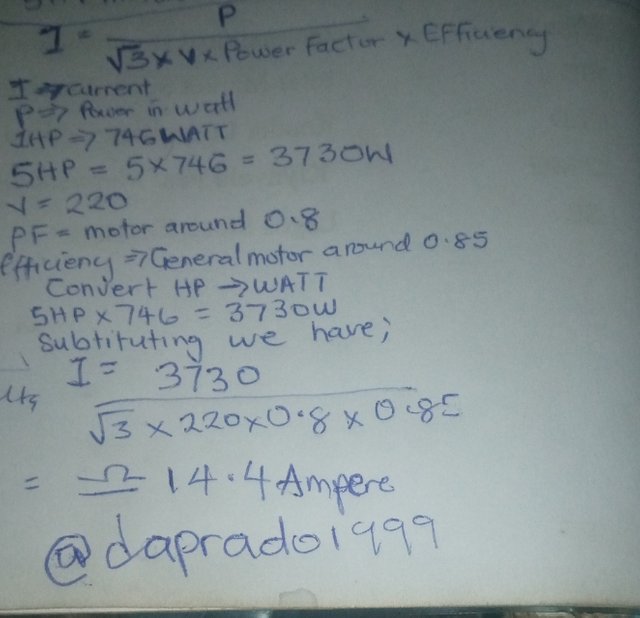 I = P
√3 x V x Power factor x Efficiency
I => current
P => Power in watt
1HP => 746WATT
5HP = 5x746 = 3730W
V = 220
PF = motor around 0.8
efficiency => General motor around 0.85
Convert HP → WATT
5HP x 746 = 3730W
Subtituting we have;
I = 3730
√3 x 220x0.8 x 0.85
= 14.4 Ampere
@daprado1999